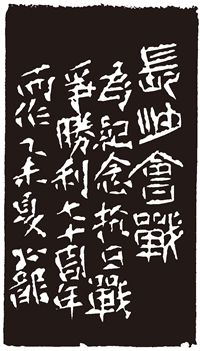 長沙會戰
為紀念抗日戰
爭勝利七十周年
而作乙未夏